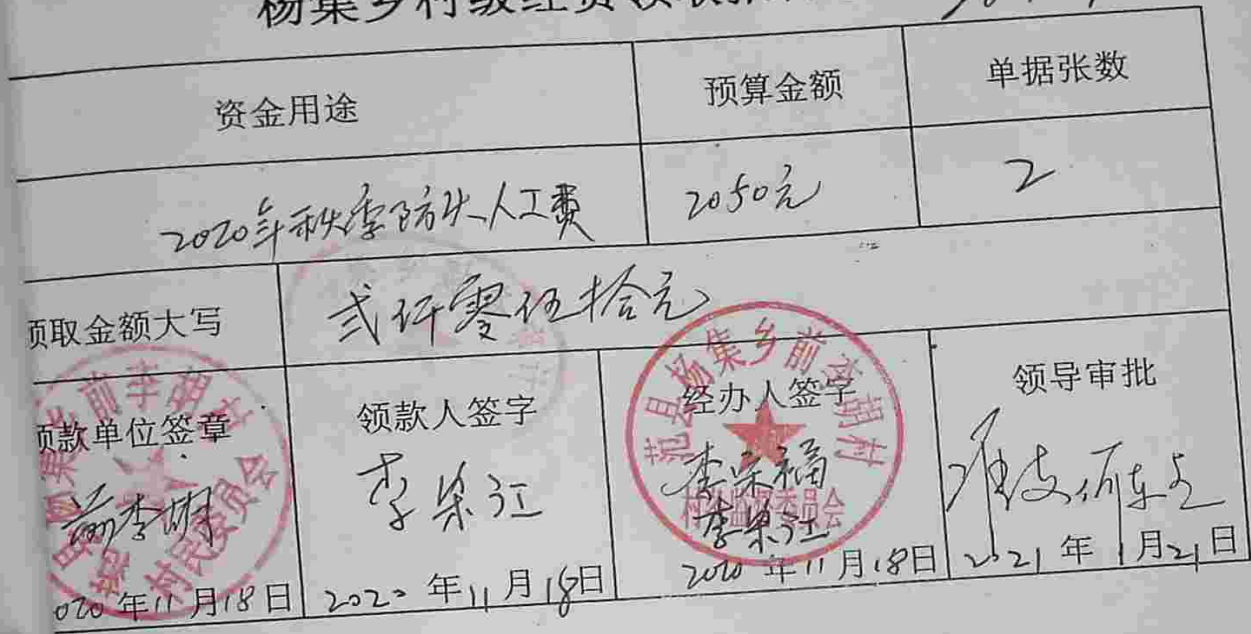 杨集乡村级经费领取
资金用途 预算金额 单据张数
2020年秋季防火人工费 2050元 2
领取金额大写 贰仟零伍拾元
领款单位签章 领款人签字 经办人签字 领导审批
前李胡 李荣江 李荣福 准支
李荣江
020年11月18日 2020年11月18日 2020年11月18日 2021年1月21日
范县杨集乡前李胡村
村务监督委员会
杨集乡前李胡村
村民委员会